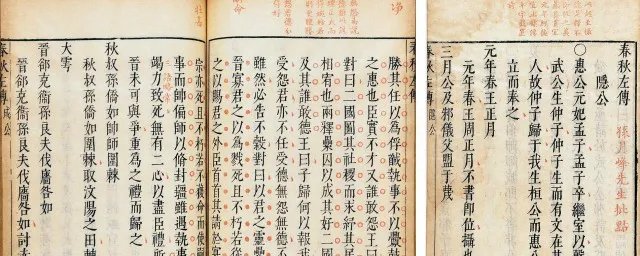 春秋左傳
孫月峰先生批點
隱公
○惠公元妃孟子孟子卒繼室以聲
武公生仲子仲子生而有文在其
人故仲子歸于我生桓公而惠
立而奉之
元年春王正月
元年春王周正月不書即位攝也
三月公及邾儀父盟于蔑
春秋左傳 隱公
春秋左傳
勝其任以爲俘馘執事不以釁鼓
之惠也臣實不才又誰敢怨王曰
對曰二國圖其社稷而求紓其民
相宥也兩釋纍囚以成其好二國
及其誰敢德王曰子歸何以報我
受怨君亦不任受德無怨無德不
雖然必告不穀對曰以君之靈纍
晉寡君之以爲戮死且不朽若從
之以賜君之外臣首首其請於寡
宗亦死且不朽若不獲命而使嗣
事而帥偏師以脩封疆雖遇執事
竭力致死無有二心以盡臣禮所
晉未可與爭重爲之禮而歸之
秋叔孫僑如帥師圍棘
秋叔孫僑如圍棘取汶陽之田棘
大雩
晉郤克衛孫良夫伐廧咎如
晉郤克衛孫良夫伐廧咎如討赤
春秋左傳 成公